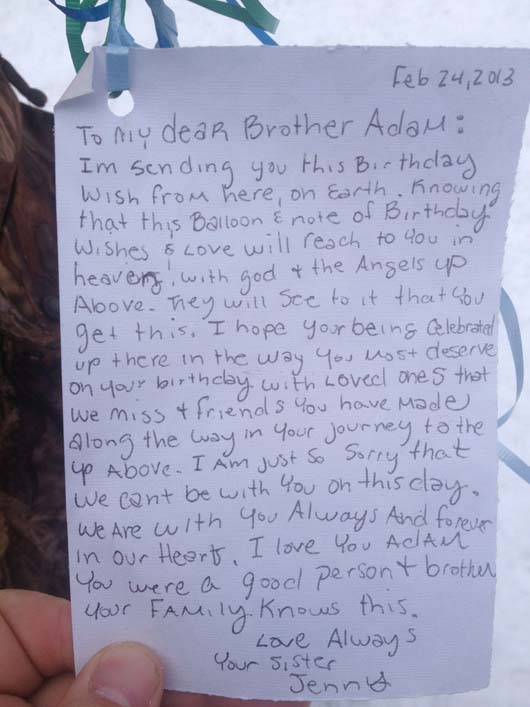 Feb 24, 2013
To My dear Brother Adam:
Im sending you this Birthday
Wish from here, on Earth. Knowing
that this Balloon & note of Birthday
Wishes & Love will reach to you in
heaven! with god + the Angels up
Above. They will see to it that you
get this. I hope your being celebrated
up there in the way you most deserve
on your birthday with Loved ones that
we miss + friends you have Made
along the way in your journey to the
up Above. I Am just so sorry that
we cant be with you on this day.
We Are with you Always And forever
in our Heart. I love you Adam
You were a good person + brother
your FAMILY Knows this.
Love Always
Your sister
Jenny